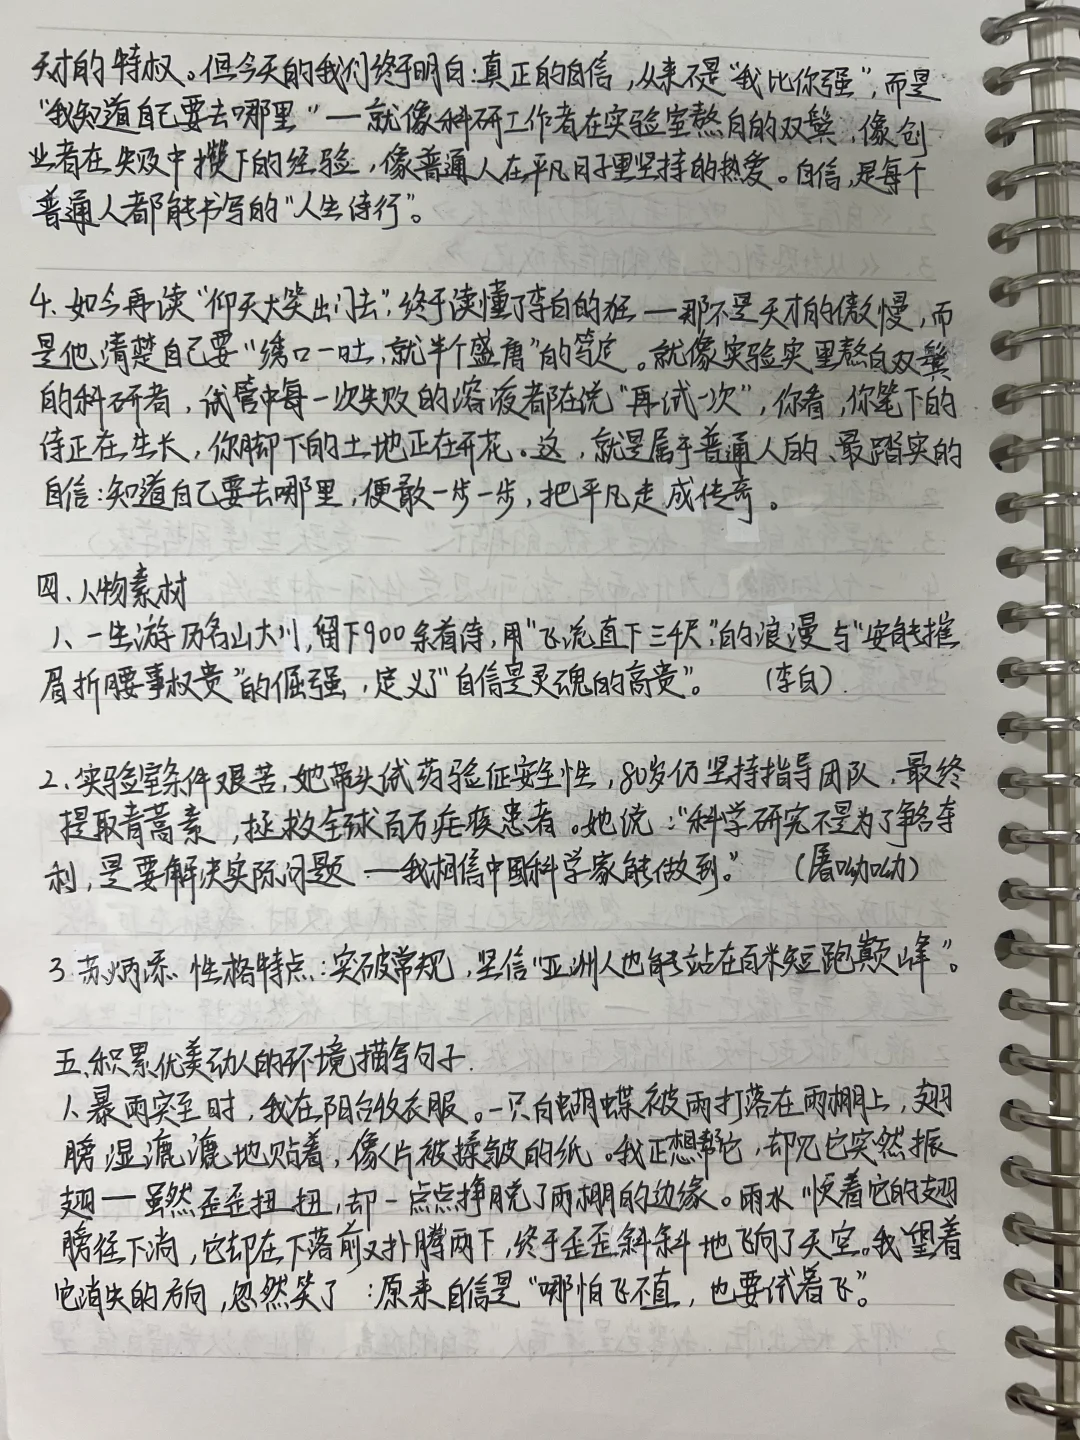 天才的特权。但今天的我们终于明白：真正的自信，从来不是“我比你强”，而是
“我知道自己要去哪里”——就像科研工作者在实验室熬白的双鬓，像创
业者在失败中攒下的经验，像普通人在平凡日子里坚持的热爱。自信，是每个
普通人都能书写的“人生诗行”。
4. 如今再读“仰天大笑出门去”，终于读懂了李白的狂——那不是天才的傲慢，而
是他清楚自己要“绣口一吐，就半个盛唐”的笃定。就像实验实里熬白双鬓
的科研者，试管中每一次失败的溶液都在说“再试一次”，你看，你笔下的
诗正在生长，你脚下的土地正在开花。这，就是属于普通人的、最踏实的
自信：知道自己要去哪里，便敢一步一步，把平凡走成传奇。
四、人物素材
1、一生游历名山大川，留下900余首诗，用“飞流直下三千尺”的浪漫与“安能摧
眉折腰事权贵”的倔强，定义了“自信是灵魂的高贵”。 (李白).
2、实验室条件艰苦，她带头试药验证安全性，80岁仍坚持指导团队，最终
提取青蒿素，拯救全球百万症疾患者。她说：“科学研究不是为了争名夺
利，是要解决实际问题——我相信中国科学家能做到。” (屠呦呦)
3. 苏炳添 性格特点：突破常规，坚信“亚洲人也能站在百米短跑巅峰”。
五、积累优美动人的环境描写句子.
1、暴雨突至时，我在阳台收衣服。一只白蝴蝶被雨打落在雨棚上，翅
膀湿漉漉地贴着，像片被揉皱的纸。我正想帮它，却见它突然振
翅——虽然歪歪扭扭，却一点点挣脱了雨棚的边缘。雨水顺着它的翅
膀往下淌，它却在下落前又扑腾两下，终于歪歪斜斜地飞向了天空。我望着
它消失的方向，忽然笑了：原来自信是“哪怕飞不直，也要试着飞”。